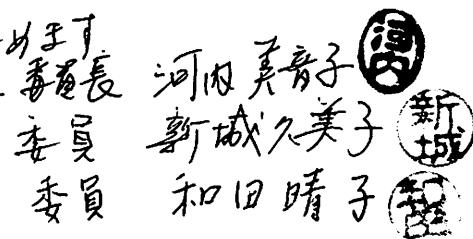 めます
委員長 河内美音子 河内
委員 新城久美子 新城
委員 和田晴子 和田